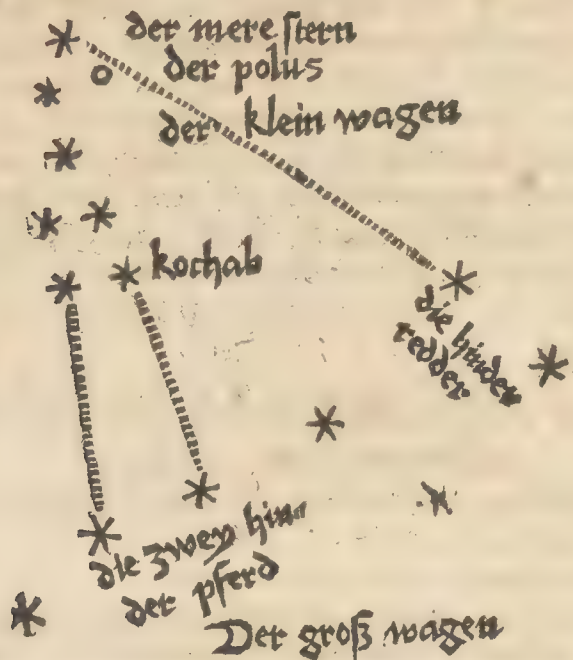 der mere ſtern
der polus
der klein wagen
kochab
die hinder
redder
die zwey hin⸗
der pferd
Der groß wagen